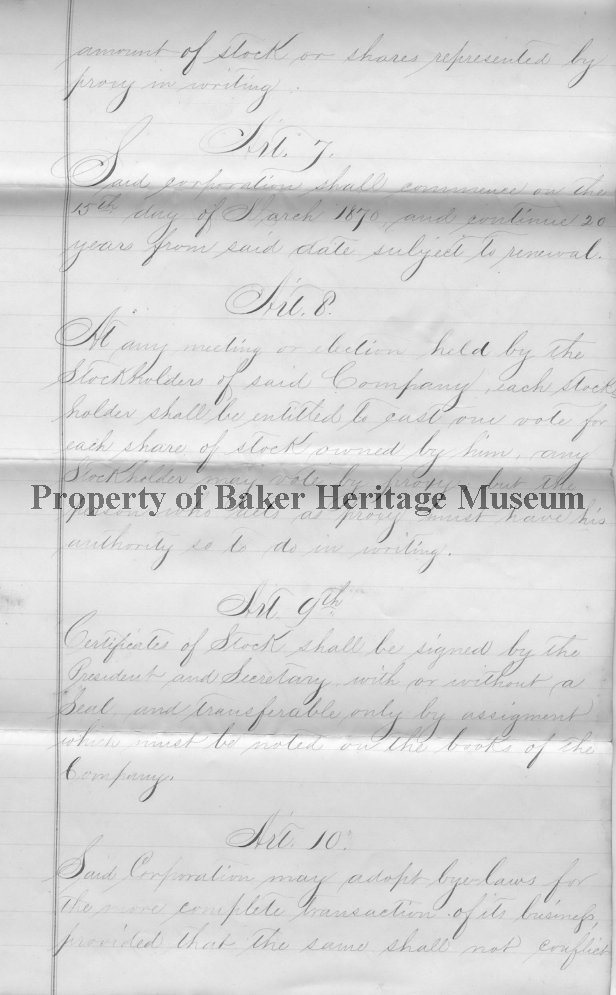 amount of stock or shares represented by
proxy in writing.
Art. 7.
Said corporation shall commence on the
15th day of March 1870, and continue 20
years from said date subject to renewal.
Art. 8.
At any meeting or election held by the
Stockholders of said Company, each stock
holder shall be entitled to cast one vote for
each share of stock owned by him, any
Stockholder may vote by proxy but the
Property of Baker Heritage Museum
person who acts as proxy must have his
authority so to do in writing.
Art 9th
Certificates of Stock shall be signed by the
President and Secretary, with or without a
Seal, and transferable only by assigment
which must be noted on the books of the
Company.
Art. 10.
Said Corporation may adopt bye-laws for
the more complete transaction of its business,
provided that the same shall not conflict